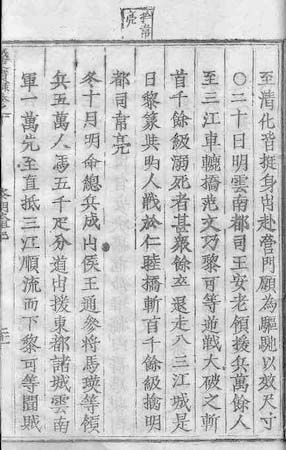 擒韋
亮
至清化皆挺身出赴營門願為驅馳以效尺寸
〇二十日明雲南都司王安老領援兵萬餘人
至三江車轆橋范文巧黎可等逆戰大破之斬
首千餘級溺死者甚衆餘立退走入三江城是
日黎篆與明人戰於仁睦橋斬首千餘級擒明
都司韋亮
冬十月明命總兵成山侯王通參將馬瑛等領
兵五萬人馬五千疋分道出援東都諸城雲南
軍一萬先至直抵三江順流而下黎可等聞賊